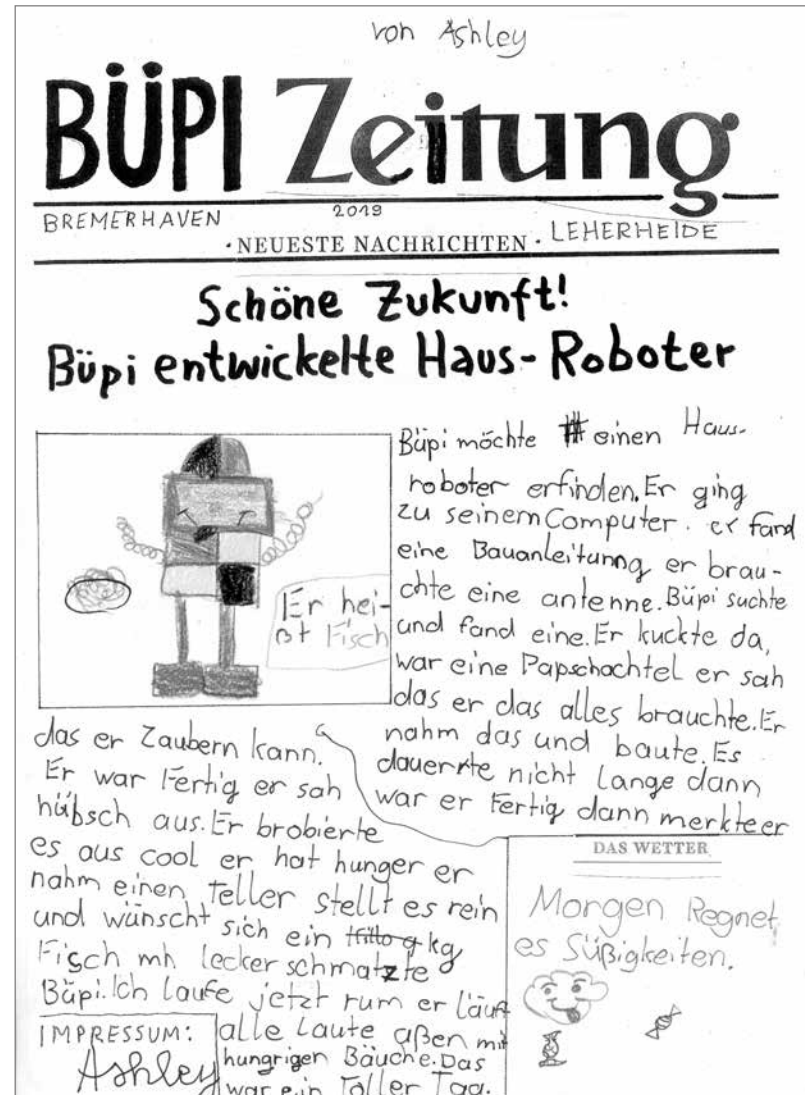 von Ashley
BÜPI Zeitung
BREMERHAVEN
2019
LEHERHEIDE
·NEUESTE NACHRICHTEN·
Schöne Zukunft!
Büpi entwickelte Haus-Roboter
Er hei-
ßt Fisch
Büpi möchte einen Haus-
roboter erfinden. Er ging
zu seinem Computer. er fand
eine Bauanleitunng er brau-
chte eine antenne. Büpi suchte
und fand eine. Er kuckte da,
war eine Papschachtel er sah
das er das alles brauchte. Er
nahm das und baute. Es
dauerte nicht Lange dann
war er Fertig dann merkte er
das er Zaubern kann.
Er war Fertig er sah
hübsch aus. Er brobierte
es aus cool er hat hunger er
nahm einen Teller stellt es rein
und wünscht sich ein kg
Fisch mh lecker schmatzte
Büpi. Ich laufe jetzt rum er läuft
alle Laute aßen mit
hungrigen Bäuche. Das
war ein Toller Tag.
IMPRESSUM:
Ashley
DAS WETTER
Morgen Regnet
es Süßigkeiten.